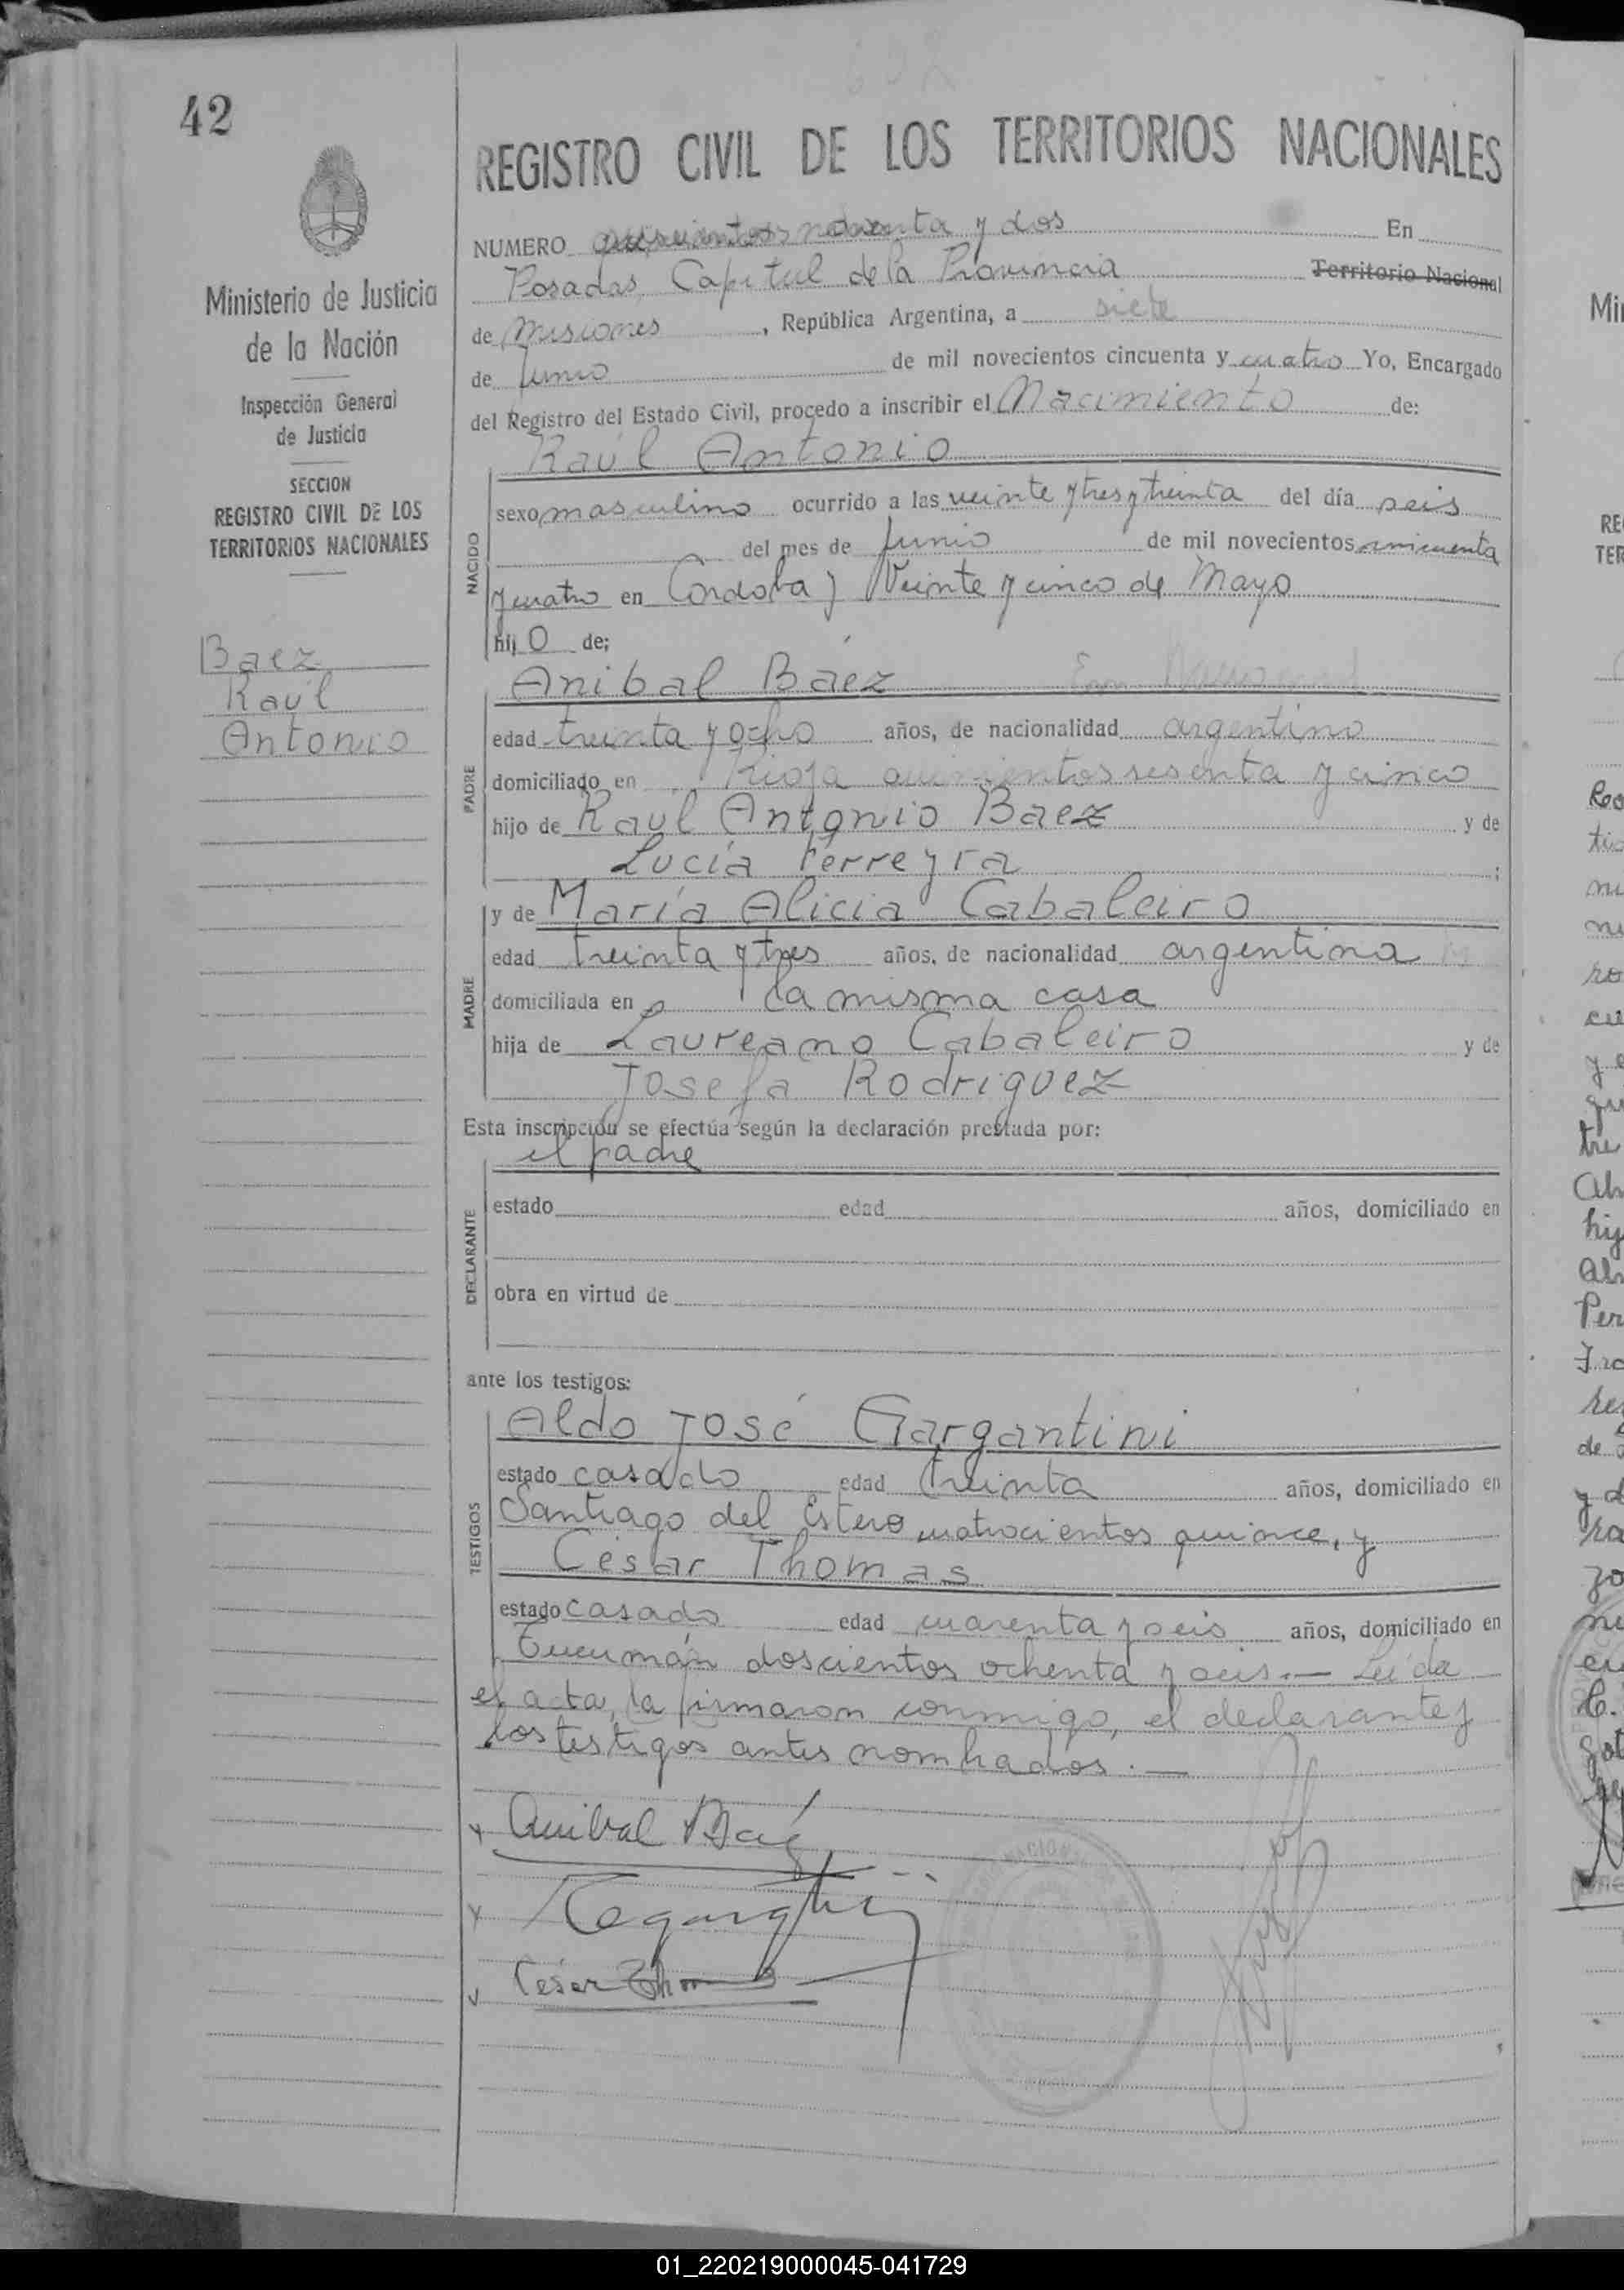 42
REGISTRO CIVIL DE LOS TERRITORIOS NACIONALES
NUMERO noventa y dos En
Posadas, Capital de la Provincia Territorio Nacional
de Misiones, República Argentina, a siete
de Junio de mil novecientos cincuenta y cuatro Yo, Encargado
del Registro del Estado Civil, procedo a inscribir el Nacimiento de:
Raúl Antonio
NACIDO
sexo masculino ocurrido a las veinte y tres y treinta del día seis
del mes de Junio de mil novecientos cincuenta
y cuatro en Córdoba y Veinte y cinco de Mayo
hijo de;
PADRE
Anibal Báez
edad treinta y ocho años, de nacionalidad argentino
domiciliado en Rioja quinientos sesenta y cinco
hijo de Raúl Antonio Baez y de
Lucía Ferreyra ;
MADRE
y de María Alicia Cabaleiro
edad treinta y tres años, de nacionalidad argentina
domiciliada en la misma casa
hija de Laureano Cabaleiro y de
Josefa Rodriguez
Esta inscripción se efectúa según la declaración prestada por:
DECLARANTE
el padre
estado edad años, domiciliado en
obra en virtud de
ante los testigos:
TESTIGOS
Aldo José Gargantini
estado casado edad treinta años, domiciliado en
Santiago del Estero cuatrocientos quince, y
César Thomas
estado casado edad cuarenta y seis años, domiciliado en
Tucumán doscientos ochenta y seis.— Leída
el acta, la firmaron conmigo, el declarante y
los testigos antes nombrados.—
Anibal Báez
César Thomas
Ministerio de Justicia
de la Nación
Inspección General
de Justicia
SECCION
REGISTRO CIVIL DE LOS
TERRITORIOS NACIONALES
Baez
Raúl
Antonio
01_220219000045-041729